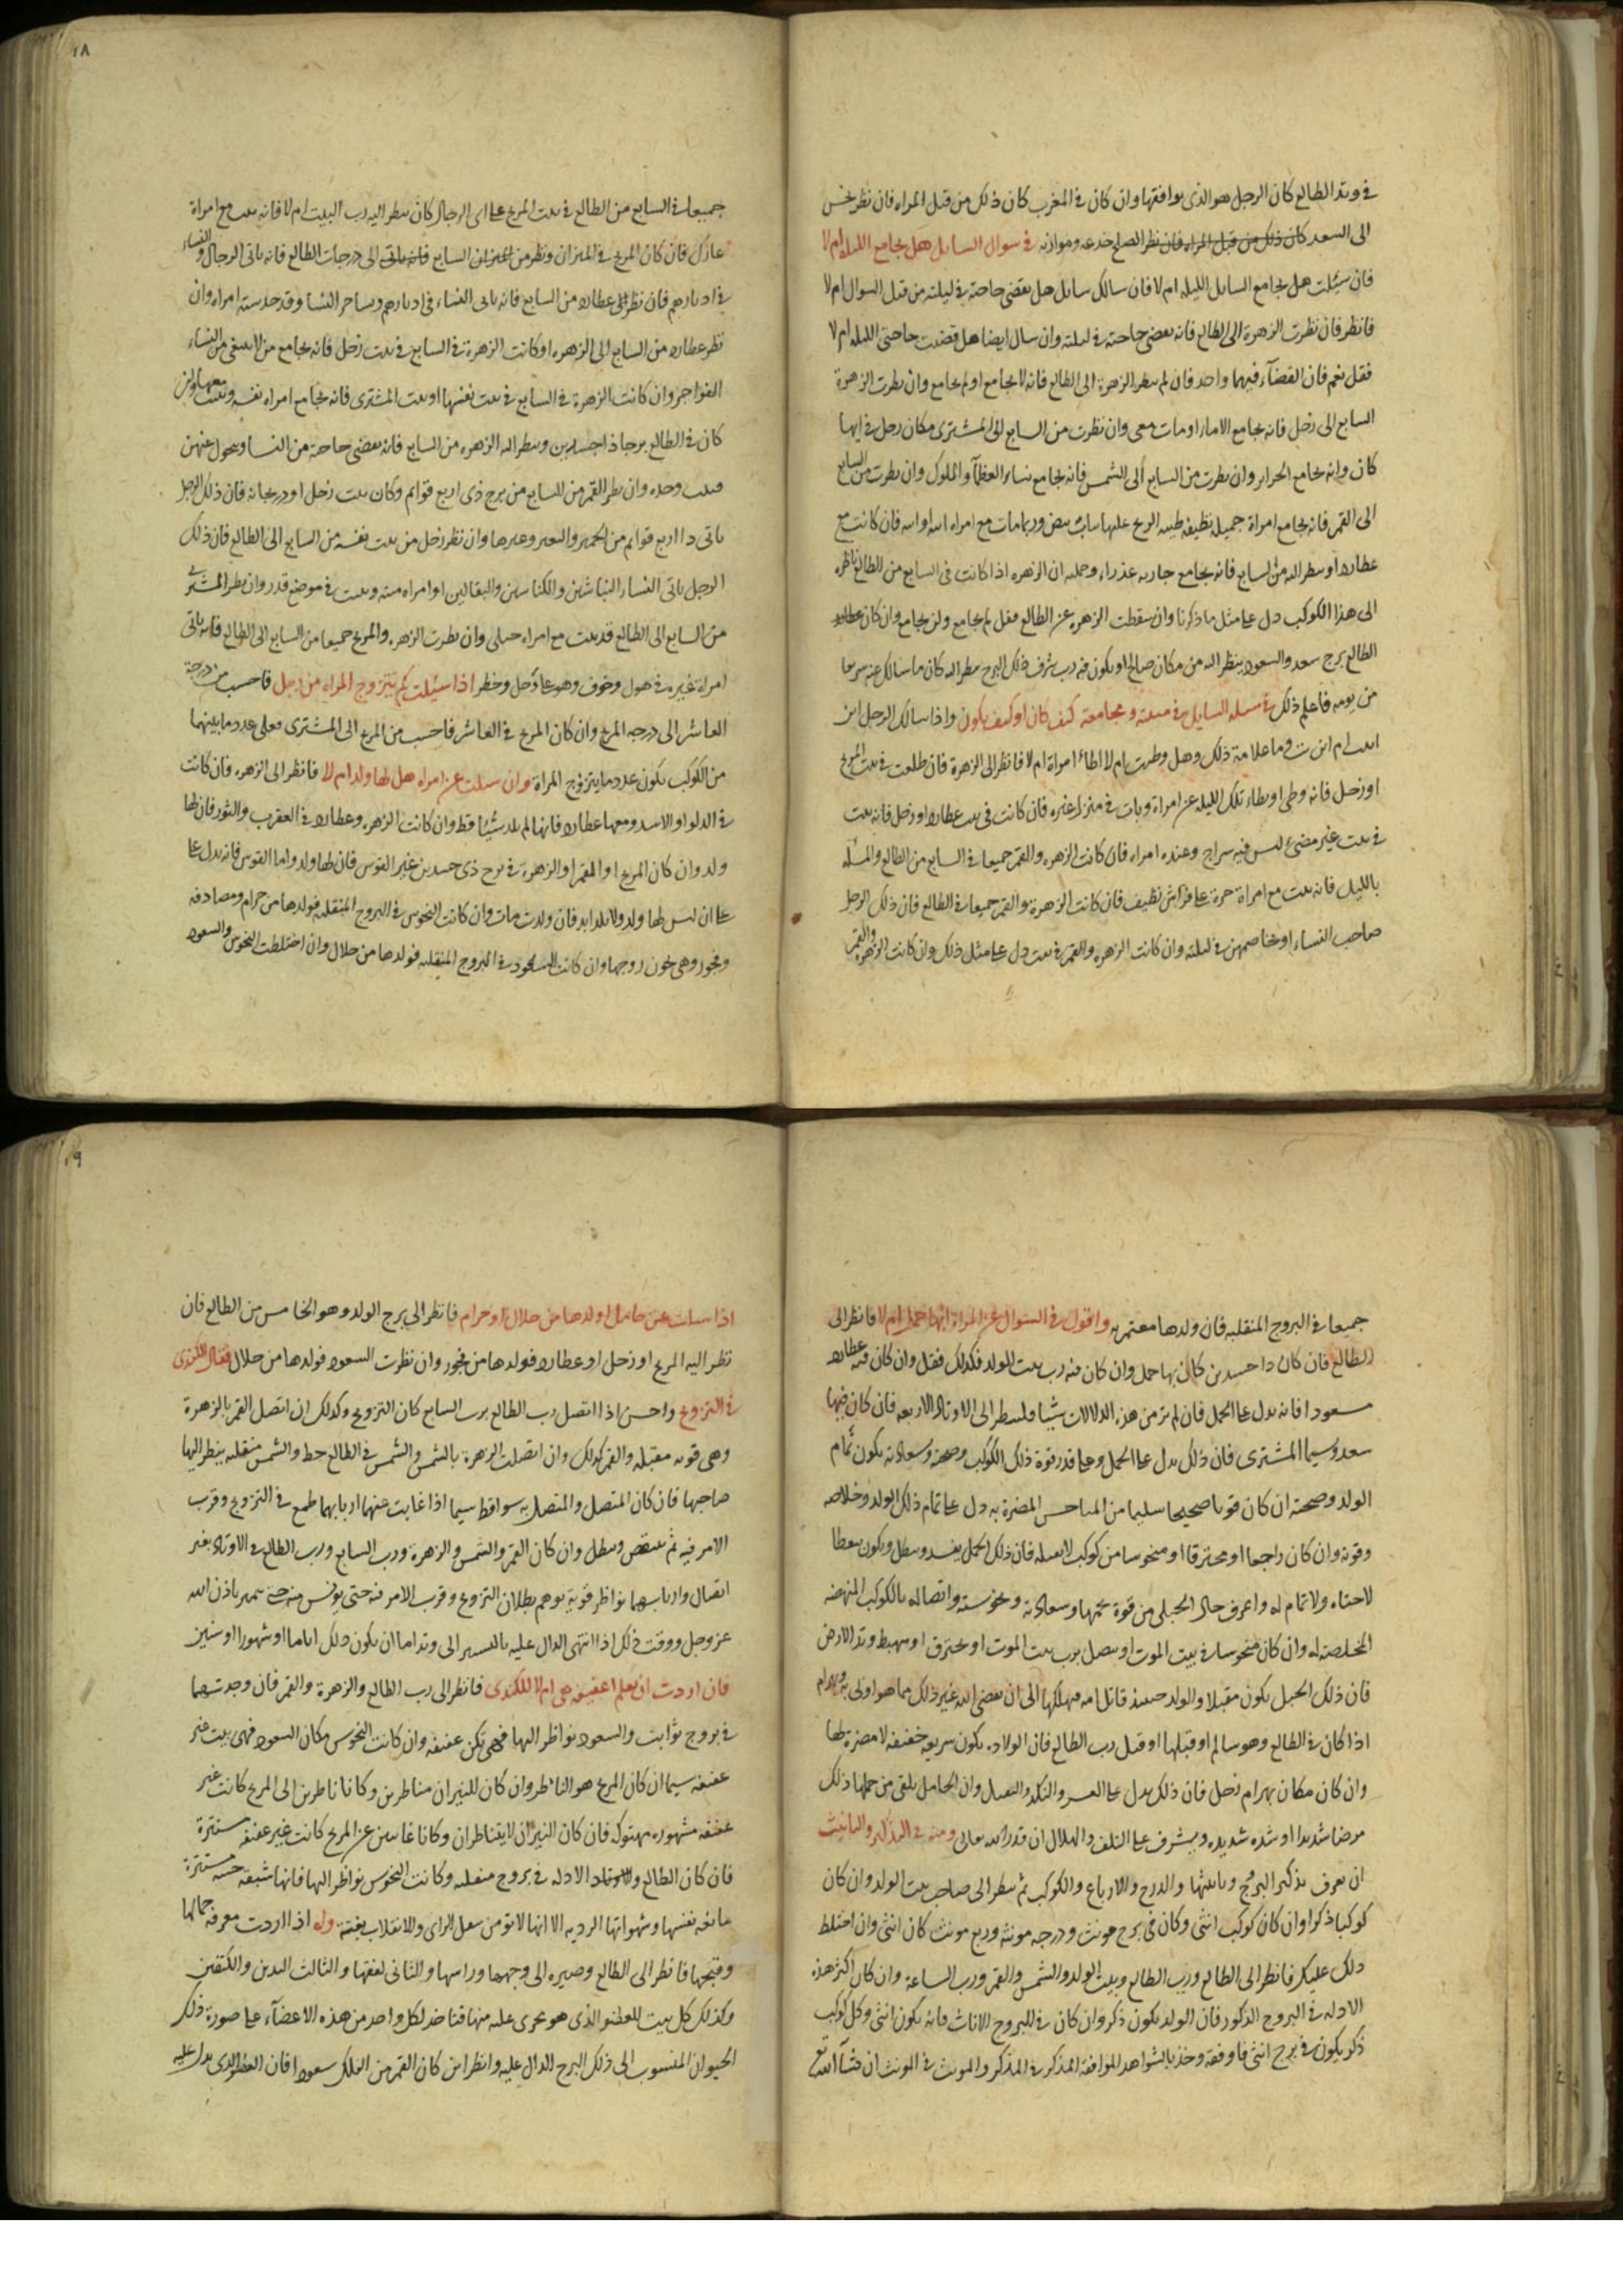 في وتد الطالع كان الرجل هو الذى يوافقها وان كان في المغرب كان ذلك من قبل المراه فان نظر نحس
الى السعد كان ذلك من قبل المراه فان نظر الصلح خدعه وموازنه في سوال السايل هل يجامع الليله ام لا
فان سيلت هل يجامع السايل الليله ام لا فان سالك سايل هل يقضى حاجته في ليلته من قبل السوال ام لا
فانظر فان نظرت الزهرة الى الطالع فانه يقضى حاجته في ليلته وان سال ايضا هل قضيت حاجتى الليله ام لا
فقل نعم فان القضآء فيهما واحد فان لم ينظر الزهرة الى الطالع فانه لا يجامع او لم يجامع وان نظرت الزهرة
السابع الى زحل فانه يجامع الاما او مات معى وان نظرت من السابع الى المشترى مكان زحل في ايها
كان وانه يجامع الحراير وان نظرت من السابع الى الشمس فانه يجامع نساء العظمآ والملوك وان نظرت من السابع
الى القمر فانه يجامع امراة جميله نظيفه طيبه الريح عليها ثياب بيض وربما مات مع امراه فان كانت مع
عطارد او ينظر اليه من السابع فانه يجامع جاريه عذراء وجمله ان الزهره اذا كانت في السابع من الطالع ناظره
الى هذا الكوكب دل على مثل ما ذكرنا وان سقطت الزهره عن الطالع فقل لم يجامع ولن يجامع وان كان عطارد
الطالع برج سعد والسعود ينظر اليه من مكان صالح او يكون فيه رب شرف ذلك البرج ينظر اليه كان ما سالك عنه سريعا
من يومه فاعلم ذلك في مسله السايل في مبيته ومجامعته كيف كان او كيف يكون واذا سالك الرجل اين
ابيت ام اين بت وما علامة ذلك وهل وطيت ام لا اطاء امراة ام لا فانظر الى الزهرة فان طلعت في بيت المريخ
او زحل فانه وطى او يطاء تلك الليله عن امراة وبات في منزل غيره فان كانت في بيت عطارد او زحل فانه يبت
في بيت غير مضىء ليس فيه سراج وعنده امراه فان كانت الزهره والقمر جميعا في السابع من الطالع والمسله
بالليل فانه يبت مع امراة حرة على فراش نظيف فان كانت الزهرة والقمر جميعا في الطالع فان ذلك الرجل
صاحب النساء او يخاصمهن في ليلته وان كانت الزهره والقمر في بيت دل على مثل ذلك وان كانت الزهره والقمر
١٨
جميعا في السابع من الطالع في بيت المريخ على اى الرجال كان ينظر اليه رب البيت ام لا فانه يبت مع امراة
عارك فان كان المريخ في الميزان ونظر من الميزان السابع فانه ياتى الى درجات الطالع فانه ياتى الرجال والنساء
في ادبارهم فان نظر الى عطارد من السابع فانه ياتى النساء في ادبارهم ويساحر النسا وقد حدسته امراه وان
نظر عطارد من السابع الى الزهره او كانت الزهرة في السابع في بيت زحل فانه يجامع من لا ينبغى من النساء
الفواجر وان كانت الزهرة في السابع في بيت نفسها او بيت المشترى فانه يجامع امراه نفسه ويبت معها وان
كان في الطالع برجا ذا جسدين وينظر اليه الزهره من السابع فانه يقضى حاجة من النسا ويحول عنهن
فيبت وحده وان نظر القمر من السابع من برج ذى اربع قوايم وكان بيت زحل او درجاته فان ذلك الرجل
ياتى ذا اربع قوايم من الحمير والبعير وغيرها وان نظر زحل من بيت نفسه من السابع الى الطالع فان ذلك
الرجل ياتى النساء النباشين والكناسين والبقالين او امراه ميته ويبت في موضع قذر وان نظر المشترى
من السابع الى الطالع قد يبت مع امراه حبلى وان نظرت الزهره والمريخ جميعا من السابع الى الطالع فانه ياتى
امراة غيره في هول وخوف وهو على وجل وخطر اذا سيلت كم يتزوج المراه من رجل فاحسب من درجة
العاشر الى درجه المريخ وان كان المريخ في العاشر فاحسب من المريخ الى المشترى فعلى عدد ما بينهما
من الكوكب يكون عدد ما يتزوج المراة وان سيلت عن امراه هل لها ولد ام لا فانظر الى الزهره فان كانت
في الدلو او الاسد ومعها عطارد فانها لم تلد شيئا قط وان كانت الزهره وعطارد في العقرب والثور فان لها
ولد وان كان المريخ او القمر او الزهرة في برج ذى جسدين غير القوس فان لها ولد واما القوس فانه يدل على
على ان ليس لها ولد ولا تلد ابدا فان ولدت مات وان كانت النحوس في البروج المنقلبه فولدها من حرام ومصادفه
وفجور وهى تخون زوجها وان كانت السعود في البروج المنقلبه فولدها من حلال وان اختلطت النحوس والسعود
جميعا في البروج المنقلبه فان ولدها معتمر به واقول في السوال عن المراة ابها حمل ام لا فانظر الى
الطالع فان كان ذا جسدين كان بها حمل وان كان فيه رب بيت الولد فكذلك فقل وان كان فيه عطارد
مسعودا فانه يدل على الحمل فان لم تر من هذه الدلالات شيئا فلينظر الى الاوتاد الاربعه فان كان فيها
سعد وسيما المشترى فان ذلك يدل على الحمل وعلى قدر قوة ذلك الكوكب وصحته وسعادته يكون تمام
الولد وصحته ان كان قويا صحيحا سليما من المناحس المضرة به دل على تمام ذلك الولد وخلاصه
وقوته وان كان راجعا او محترقا او منحوسا من كوكب لا يقبله فان ذلك الحمل يفسد ويبطل ويكون سقطا
لا حياه ولا تمام له واعرف حال الحبلى من قوة نجمها وسعادته ونحوسته واتصاله بالكوكب المنهضه
المخلصة له وان كان منحوسا في بيت الموت او يتصل برب بيت الموت او يحترق او يهبط وتد الارض
فان ذلك الحبل يكون مقبلا والولد حينيذ قاتل امه مهلكها الى ان يقضى الله غير ذلك مما هو اولى به وبهرام
اذا كان في الطالع وهو سالم او قبلها او قبل رب الطالع فان الولاد يكون سريعه خفيفه لا مضرة لها
وان كان مكان بهرام زحل فان ذلك يدل على العسر والنكد والثقل وان الحامل يلقى من حملها ذلك
مرضا شديدا او شده شديده ويشرف على التلف والهلاك ان قدر الله تعالى ومنه في المذكر والتانيث
ان يعرف تذكير البروج وتانيثها والدرج والارباع والكوكب ثم ينظر الى صاحب بيت الولد وان كان
كوكبا ذكرا وان كان كوكب انثى وكان في برج مونث ودرجه مونثه وربع مونث كان انثى وان اختلط
ذلك عليك فانظر الى الطالع ورب الطالع وبيت الولد والشمس والقمر ورب الساعة وان كان اكثر هذه
الادله في البروج الذكور فان الولد يكون ذكر وان كان في البروج الاناث فانه يكون انثى وكل كوكب
ذكر يكون في برج انثى فاوفقه وخذ بالشواهد الموافقة المذكر في المذكر والمونث في المونث ان شآ الله تع
١٩
اذا سيلت عن حامل اولدها من حلال او حرام فانظر الى برج الولد وهو الخامس من الطالع فان
نظر اليه المريخ او زحل او عطارد فولدها من فجور وان نظرت السعود فولدها من حلال فقال الكندى
في التزويج واحسن اذا اتصل رب الطالع برب السابع كان التزويج وكذلك ان اتصل القمر بالزهرة
وهى قويه مقبله والقمر كذلك وان اتصلت الزهرة بالشمس والشمس في الطالع حظ والشمس متقلبه ينظر اليها
صاحبها فان كان المتصل والمتصل به سواقط سيما اذا غابت عنهما اربابهما طمع في التزويج وقرب
الامر فيه ثم ينتقض ويبطل وان كان القمر والشمس والزهرة ورب السابع ورب الطالع في الاوتاد بغير
اتصال واربابهما نواظر قوية يوهم بطلان التزويج وقرب الامر فيه حتى يويس منه حتى يتم باذن الله
عز وجل ووقت ذلك اذا انتهى الدال عليه بالتسيير الى وتد اما ان يكون ذلك اياما او شهورا او سنين
فان اردت ان تعلم اعفيفه هى ام لا للكندى فانظر الى رب الطالع والزهرة والقمر فان وجدتهما
في بروج ثوابت والسعود نواظر اليها فهى تكن عفيفه وان كانت النحوس مكان السعود فهى بيت غير
عفيفه سيما ان كان المريخ هو الناظر وان كان للنيران متناظرين وكانا ناظرين الى المريخ كانت غير
عفيفه مشهوره مهتوكه فان كان النيران لا يتناظران وكانا غايبين عن المريخ كانت غير عفيفه مستترة
فان كان الطالع والاوتاد الادله في بروج منقلبه وكانت النحوس نواظر اليها فانها شبقه حسنه مستترة
مانعه نفسها وشهواتها الرديه الا انها لا تومن تنقل الراى والانقلاب بغتة وله اذا اردت معرفه جمالها
وقبحها فانظر الى الطالع وصيره الى وجهها وراسها والثانى لعنقها والثالث اليدين والكتفين
وكذلك كل بيت للعضو الذى هو يجرى عليه منها فتاخذ لكل واحد من هذه الاعضآء على صورة ذلك
الحيوان المنسوب الى ذلك البرج الدال عليه وانظر اين كان القمر من الفلك سعودا فان العضو الذى يدل عليه